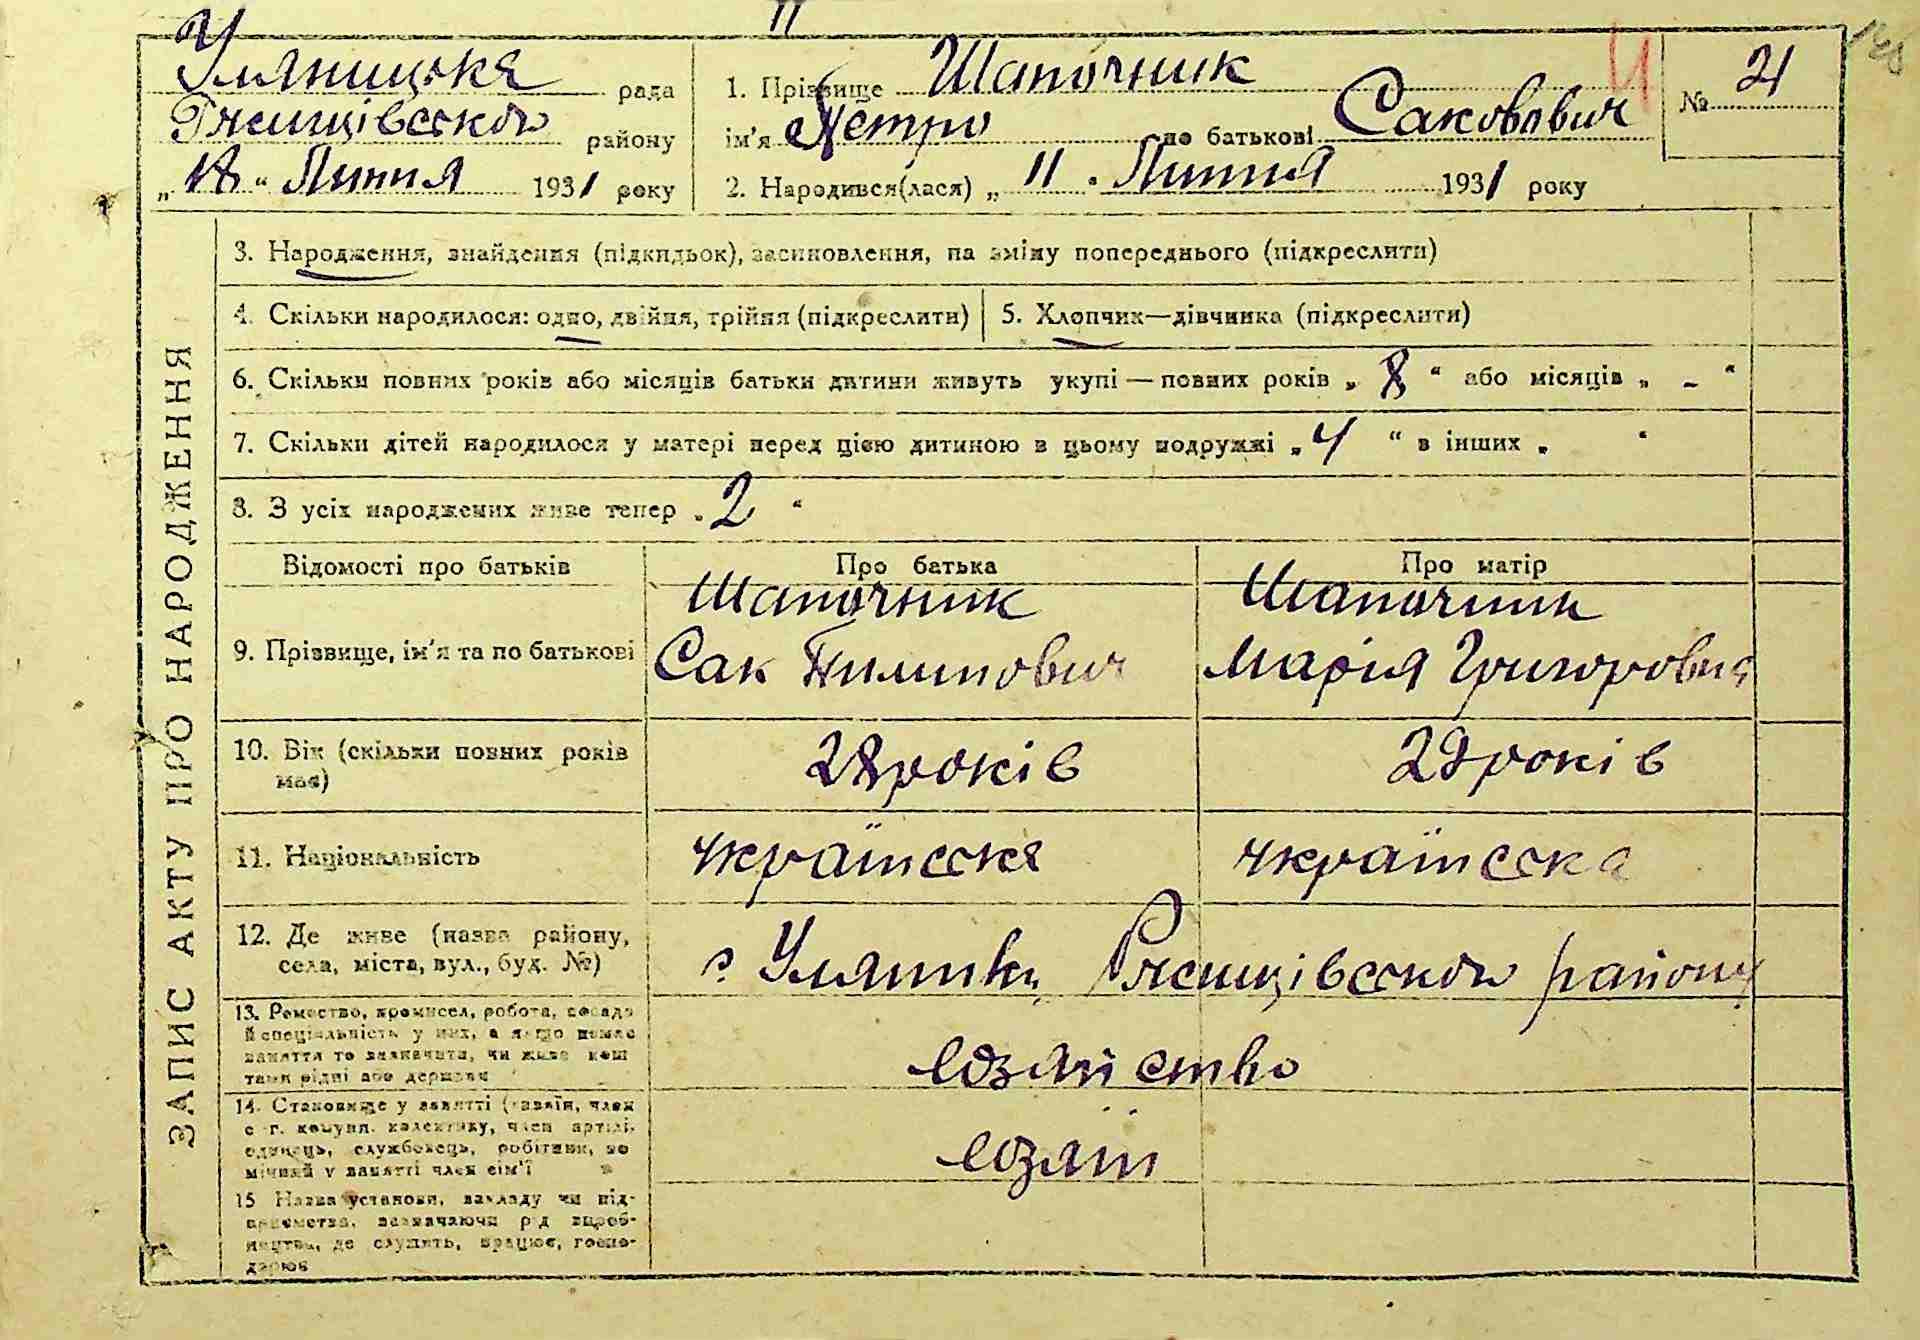 Уляницька рада
Рясицівсьkої району
„18“ Липня 1931 року
1. Прізвище Шапочник
ім'я Петро по батькові Сакович
№ 21
2. Народився(лася) „11“ Липня 1931 року
ЗАПИС АКТУ ПРО НАРОДЖЕННЯ
3. Народження, знайдення (підкидьок), засиновлення, на зміну попереднього (підкреслити)
4. Скільки народилося: одно, двійня, трійня (підкреслити)
5. Хлопчик—дівчинка (підкреслити)
6. Скільки повних років або місяців батьки дитини живуть укупі — повних років „8“ або місяців „-“
7. Скільки дітей народилося у матері перед цією дитиною в цьому подружжі „4“ в інших „ “
8. З усіх народжених живе тепер „2“
Відомості про батьків
Про батька
Про матір
9. Прізвище, ім'я та по батькові
Шапочник
Сак Пилипович
Шапочник
Марія Григоровна
10. Вік (скільки повних років має)
28 років
29 років
11. Національність
україсска
україсска
12. Де живе (назва району,
села, міста, вул., буд. №)
с Уляники, району
13. Ремество, промисел, робота, посада
й спеціяльність у них, а якщо немає
заняття то зазначити, чи живе кош
тами рідні або держави
14. Становище у занятті (хазяїн, член
с.-г. комуни, колективу, член артілі,
одинець, службовець, робітник, по
мічний у занятті член сім'ї
15 Назва установи, закладу чи під-
приємства, зазначаючи рід вироб-
ництва, де служить, працює, госпо-
дарює